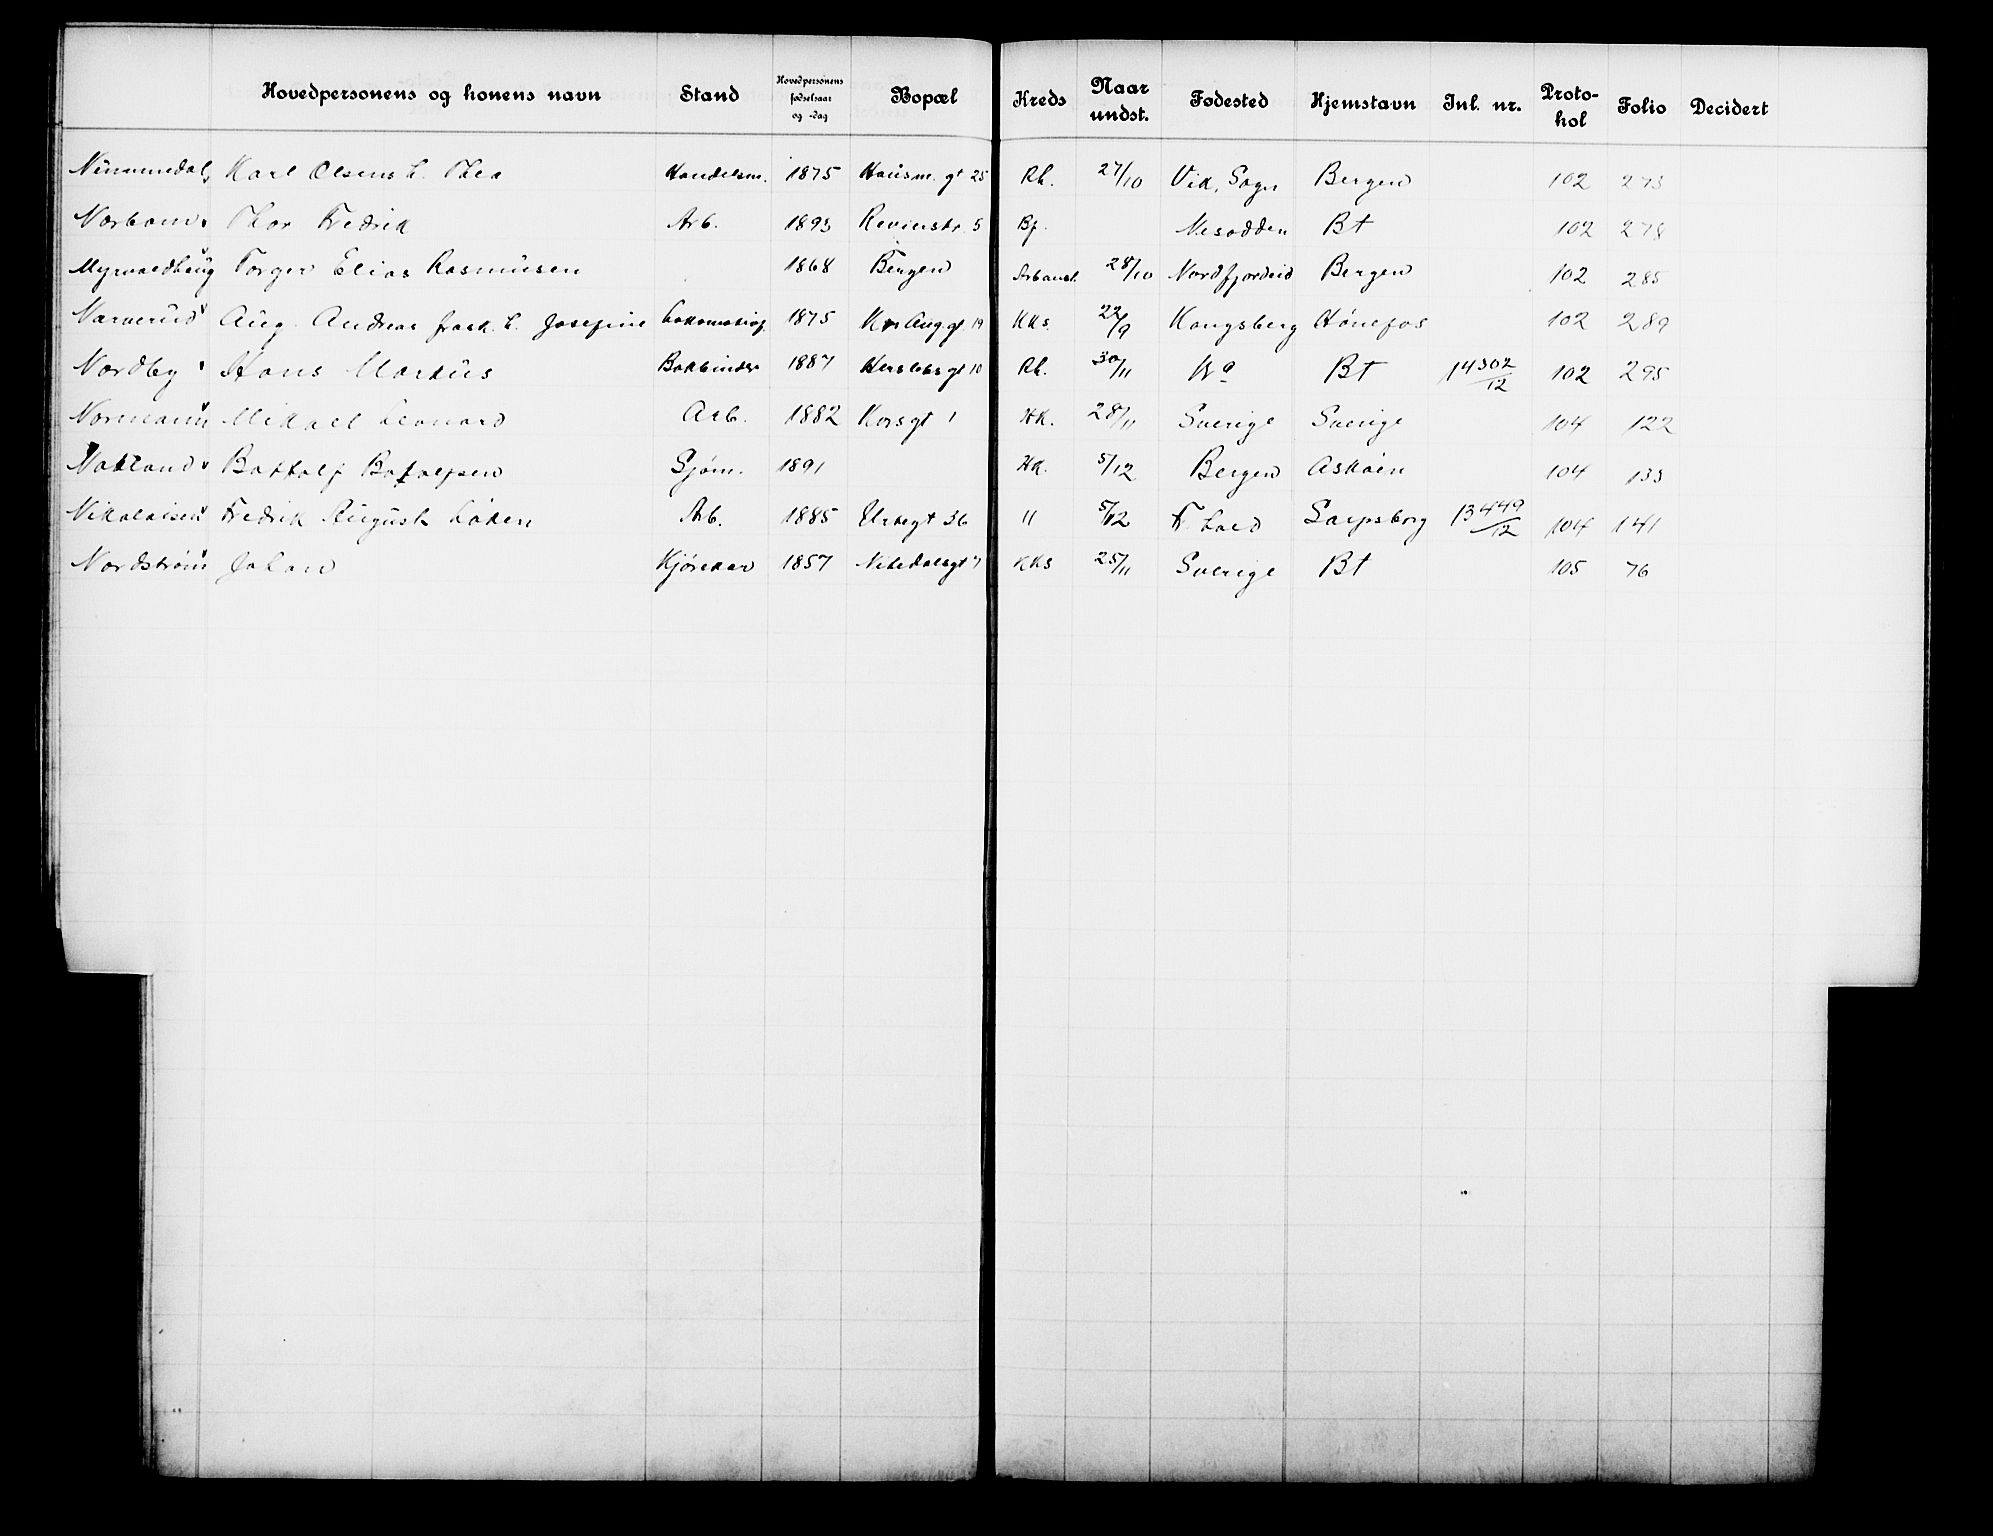 Hovedpersonens og konens navn Stand Hovedpersonens fødselsaar og -dag Bopæl Kreds Naar undst. Fødested Hjemstavn Inl. nr. Protokol Folio Decidert
Karl Olsens h. Thea Handelsm. 1875 Hausm. gt 25 Rh. 27/10 Vik, Sogn Bergen 102 273
Thor Fredrik Arb. 1893 5 Bf. Nesodden Bt 102 278
Myrvoldhaug Torger Elias Rasmusen 1868 Bergen 28/10 Nordfjordeid Bergen 102 285
Narverud Aug. Andreas h. Josefine 1875 Kr Aug gt 19 KKs. 22/9 Kongsberg Hønefos 102 289
Nordby Hans Markus Bokbinder 1887 Herslebs gt 10 Rh. 30/11 Kra Bt 14302/12 102 295
Normann Mikael Leonard Arb. 1882 Korsgt 1 HK. 28/11 Sverige Sverige 104 122
Bottolf Botolfsen Sjøm. 1891 HK. 5/12 Bergen Askøen 104 133
Nikolaisen Fredrik August Arb. 1885 Urtegt 36 " 5/12 Sarpsborg 13449/12 104 141
Nordstrøm Johan Kjørekar 1857 Nitedalsgt 7 KKs 25/11 Sverige Bt 105 76